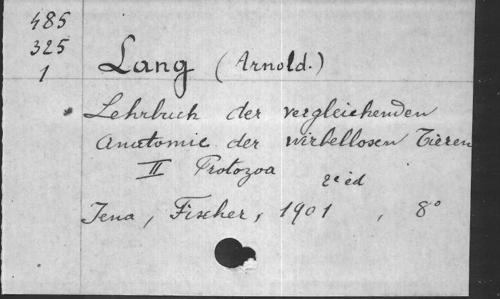 485
325
1
Lang (Arnold.)
Lehrbuch der vergleichenden
Anatomie der wirbellosen Tieren
II Protozoa
2e éd
Jena, Fischer, 1901, 8°